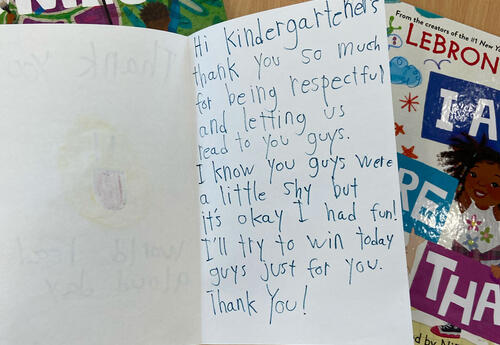 Hi Kindergartchers
thank you so much
for being respectful
and letting us
read to you guys.
I know you guys were
a little shy but
it's okay I had fun!
I'll try to win today
guys just for you.
Thank You!
Thank You
world read
aloud day
From the creators of the #1 New Yo
LEBRON
I A
THA